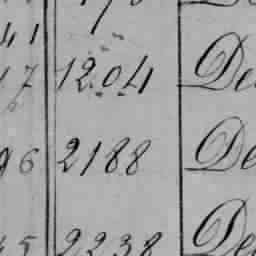 41
17 1204 De
96 2188 De
45 2238 De